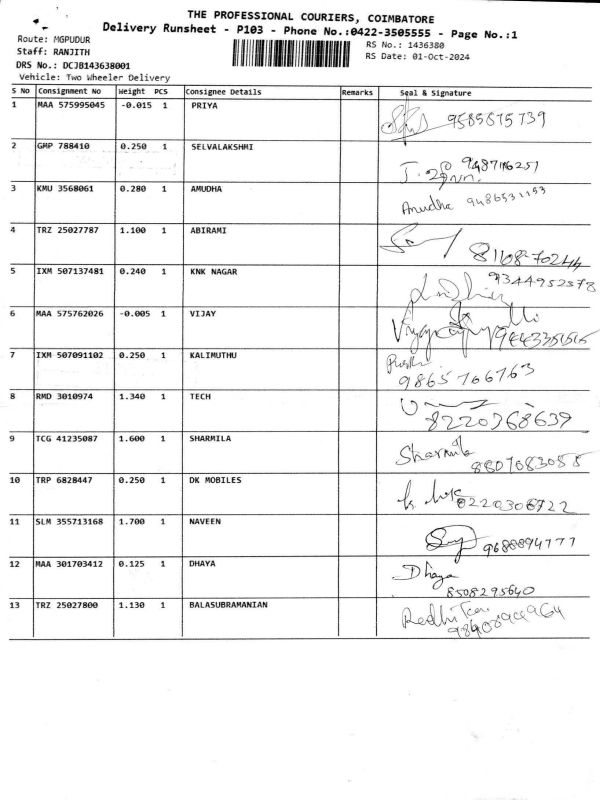 THE PROFESSIONAL COURIERS, COIMBATORE
Delivery Runsheet - P103 - Phone No.:0422-3505555 - Page No.:1
Route: MGPUDUR
RS No.: 1436380
Staff: RANJITH
RS Date: 01-Oct-2024
DRS No.: DCJB143638001
Vehicle: Two Wheeler Delivery
S No Consignment No Weight PCS Consignee Details Remarks Seal & Signature
1 MAA 575995045 -0.015 1 PRIYA 9585875739
2 GMP 788410 0.250 1 SELVALAKSHMI
3 KMU 3568061 0.280 1 AMUDHA Amudha 9486531153
4 TRZ 25027787 1.100 1 ABIRAMI
5 IXM 507137481 0.240 1 KNK NAGAR 9344952578
6 MAA 575762026 -0.005 1 VIJAY
7 IXM 507091102 0.250 1 KALIMUTHU
9865766763
8 RMD 3010974 1.340 1 TECH
8220368639
9 TCG 41235087 1.600 1 SHARMILA Sharmila
8807683088
10 TRP 6828447 0.250 1 DK MOBILES
11 SLM 355713168 1.700 1 NAVEEN
9688894777
12 MAA 301703412 0.125 1 DHAYA Dhaya
8508295640
13 TRZ 25027800 1.130 1 BALASUBRAMANIAN